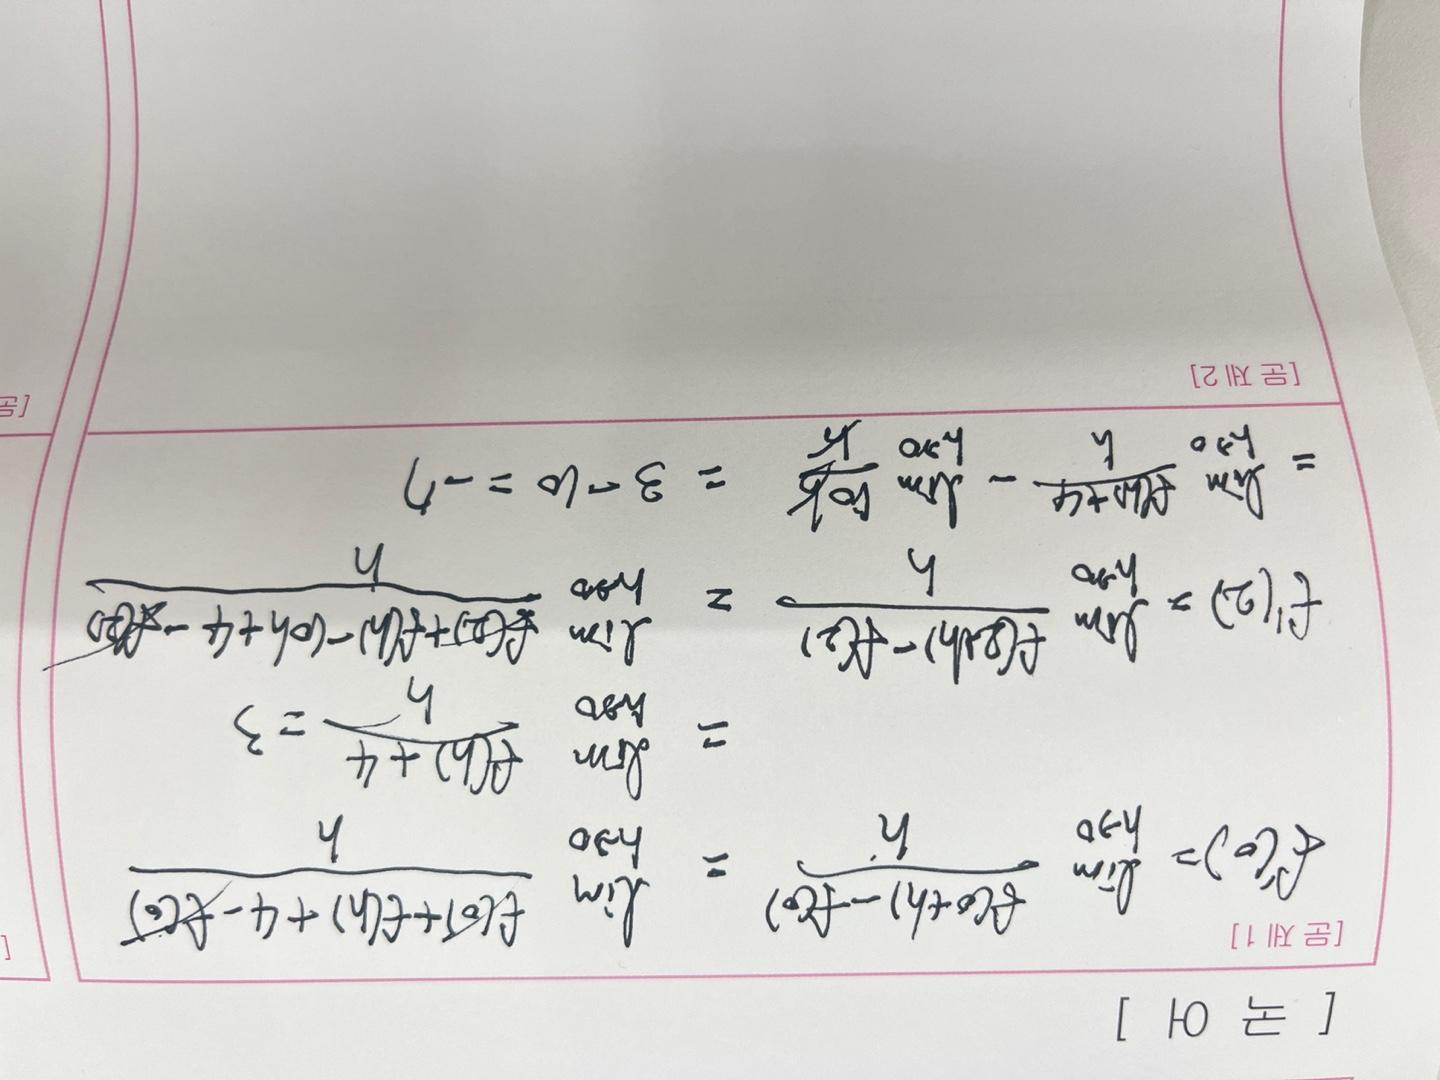 [ 국 어 ]
[문 제 1]
f'(0) = lim h→0 (f(0+h) - f(0))/h = lim h→0 (f(0) + f(h) + 4 - f(0))/h
= lim h→0 (f(h) + 4)/h = 3
f'(2) = lim h→0 (f(2+h) - f(2))/h = lim h→0 (f(2) + f(h) - 10h + 4 - f(2))/h
= lim h→0 (f(h) + 4)/h - lim h→0 10h/h = 3 - 10 = -7
[문 제 2]